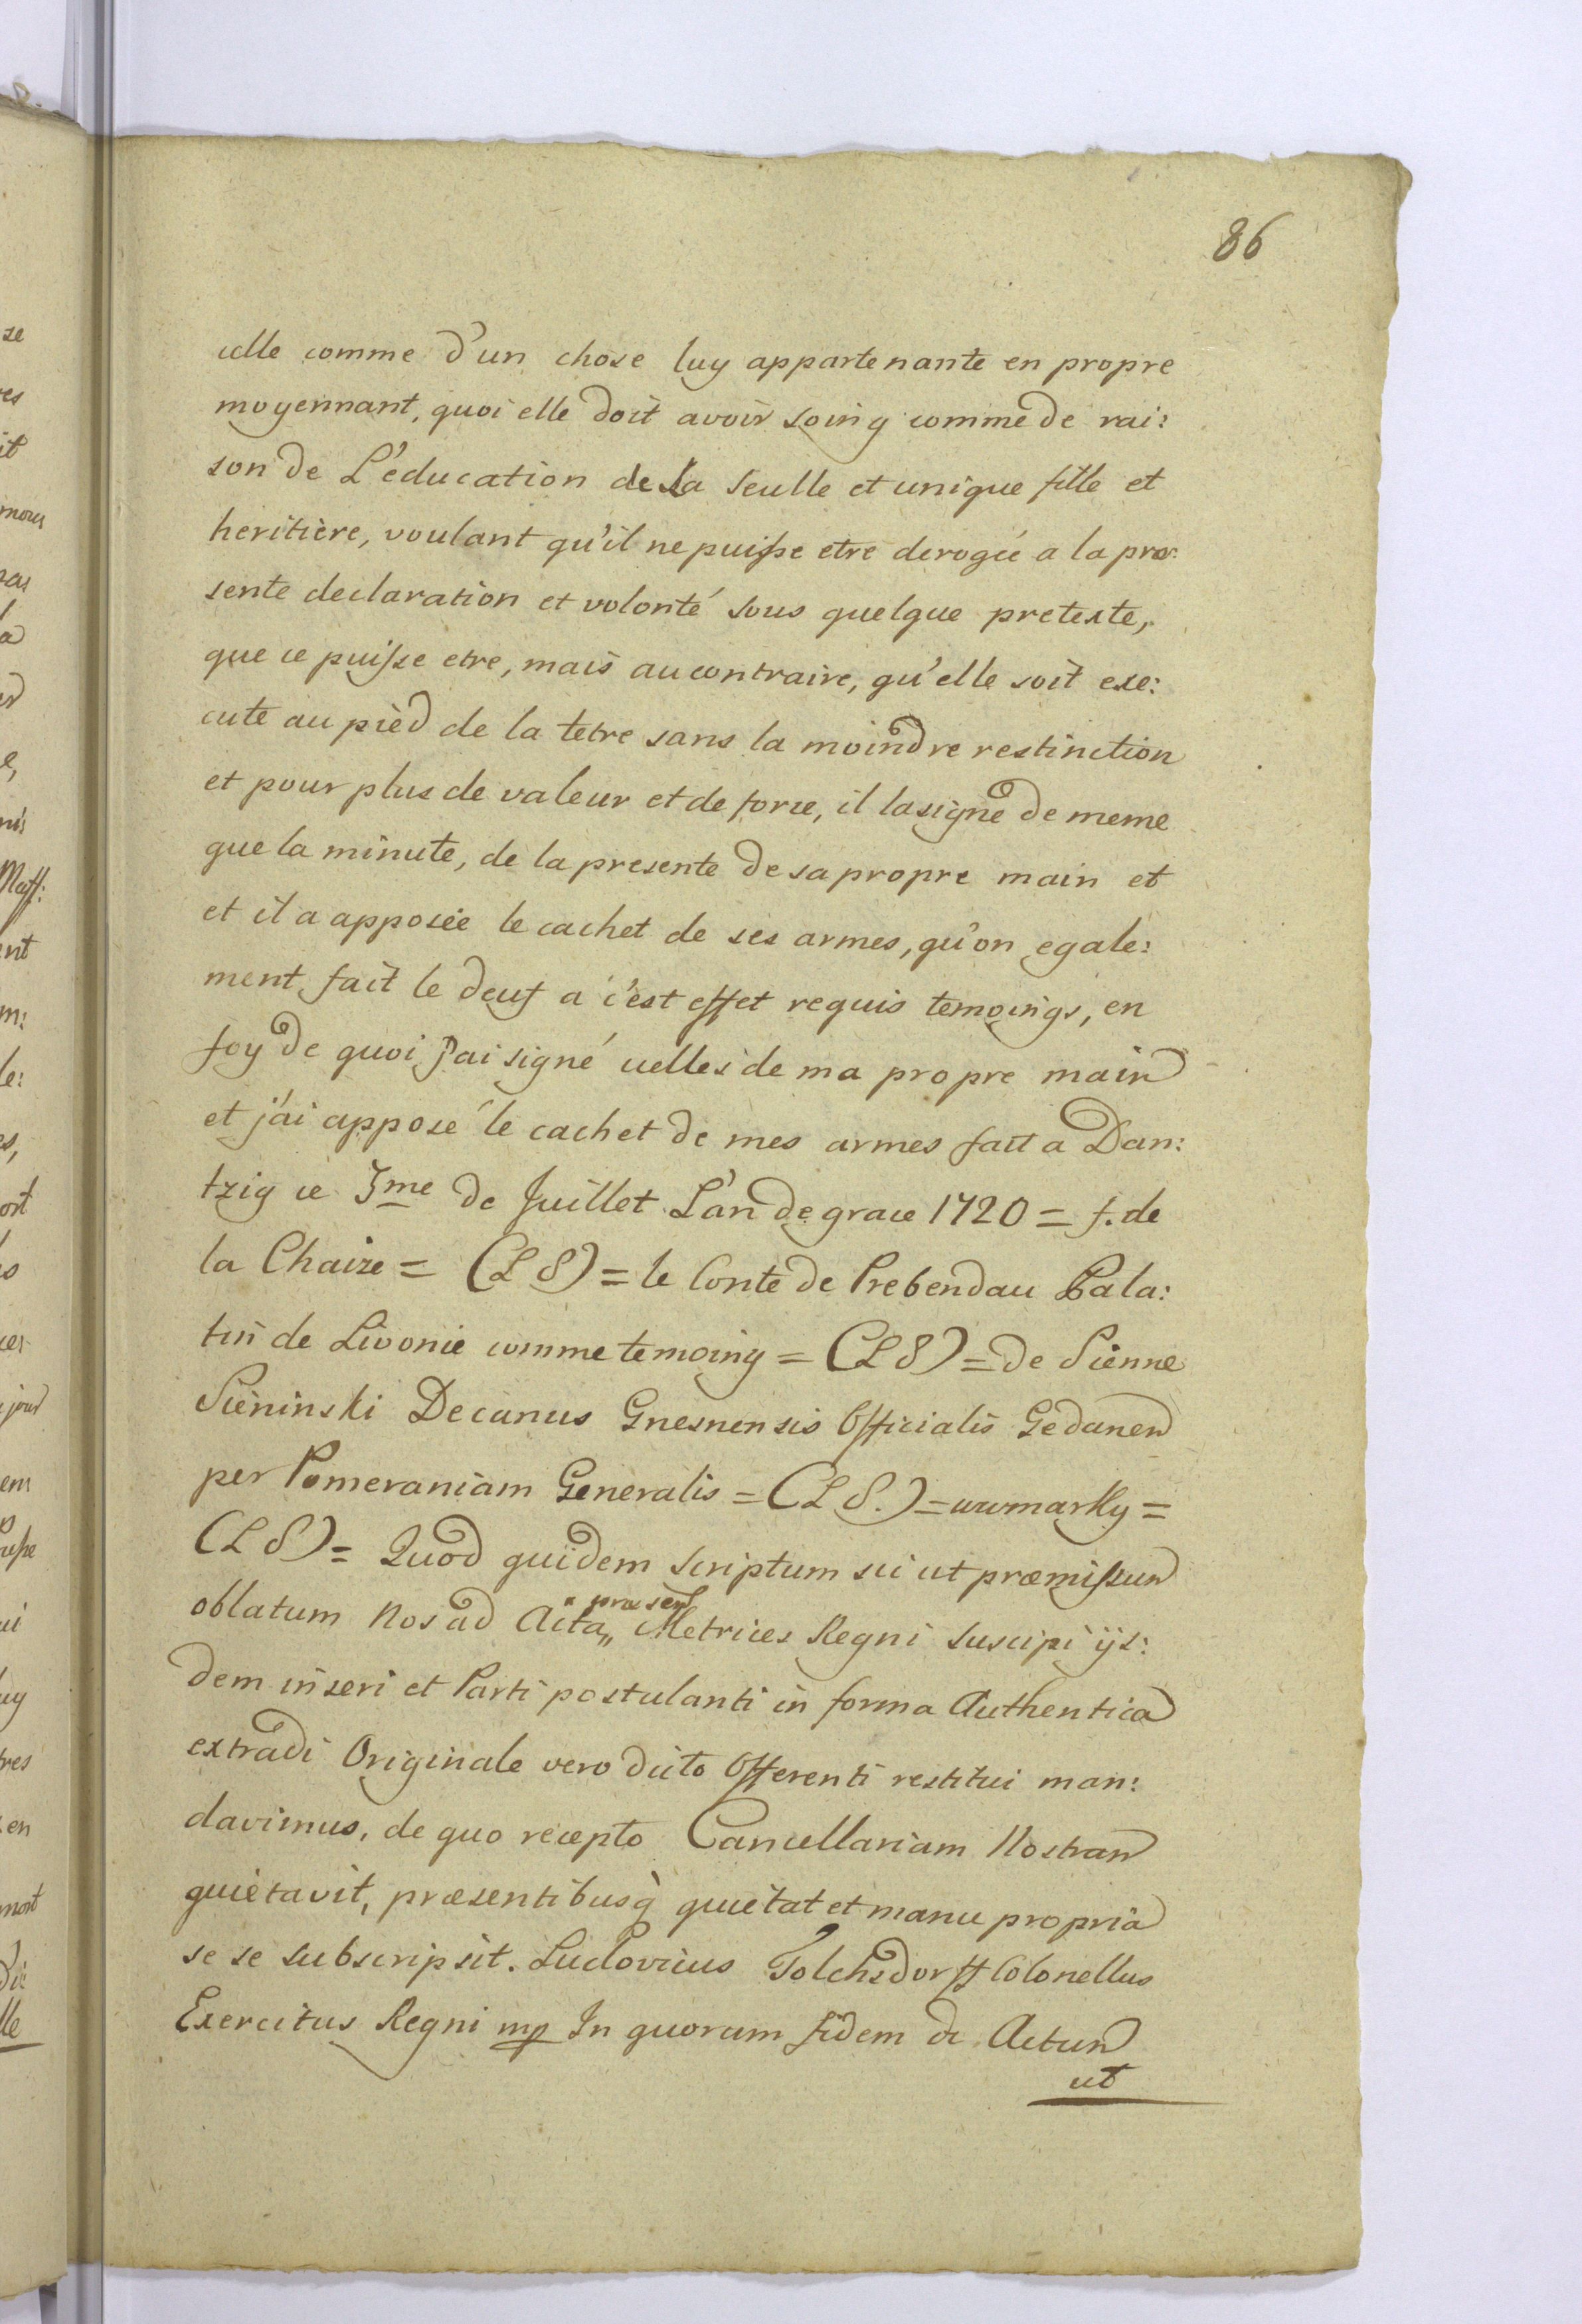 86
celle comme d'un chose luy appartenante en propre
moyennant, quoi elle doit avoir soing comme de rai:
son de L'education de sa seulle et unique fille et
heritière, voulant qu'il ne puisse etre derogée a la præ:
sente declaration et volonté sous quelque pretexte,
que ce puisse etre, mais au contraire, qu'elle soit exe:
cute au pièd de la tetre sans la moindre restinction
et pour plus de valeur et de force, il la signé de meme
que la minute, de la presente de sa propre main et
et il a apposée le cachet de ses armes, qu'on egale:
ment fait le deux a c'est effet requis temoings, en
foy de quoi j'ai signé celles de ma propre main
et j'ai apposé le cachet de mes armes fait a Dan:
tzig ce 3me de Juillet L'an de grace 1720 = f. de
la Chaize = (L S) = le Conte de Prebendau Pala:
tin de Livonie comme temoing = (L S) = de Sienne
Sieninski Decanus Gnesnensis Officialis Gedanen
per Pomeraniam Generalis = (L S.) =
(L S) = Quod quidem scriptum sic ut præmissum
oblatum Nos ad Acta „ præsen Metrices Regni suscipi ijs:
dem inseri et Parti postulanti in forma Authentica
extradi Originale vero dicto Offerenti restitui man:
davimus, de quo recepto Cancellariam Nostram
quietavit, præsentibusq̀ quietat et manu propria
se se subscripsit. Ludovicus Tolchsdorff Colonellus
Exercitus Regni mp In quorum fidem &c Actum
ut